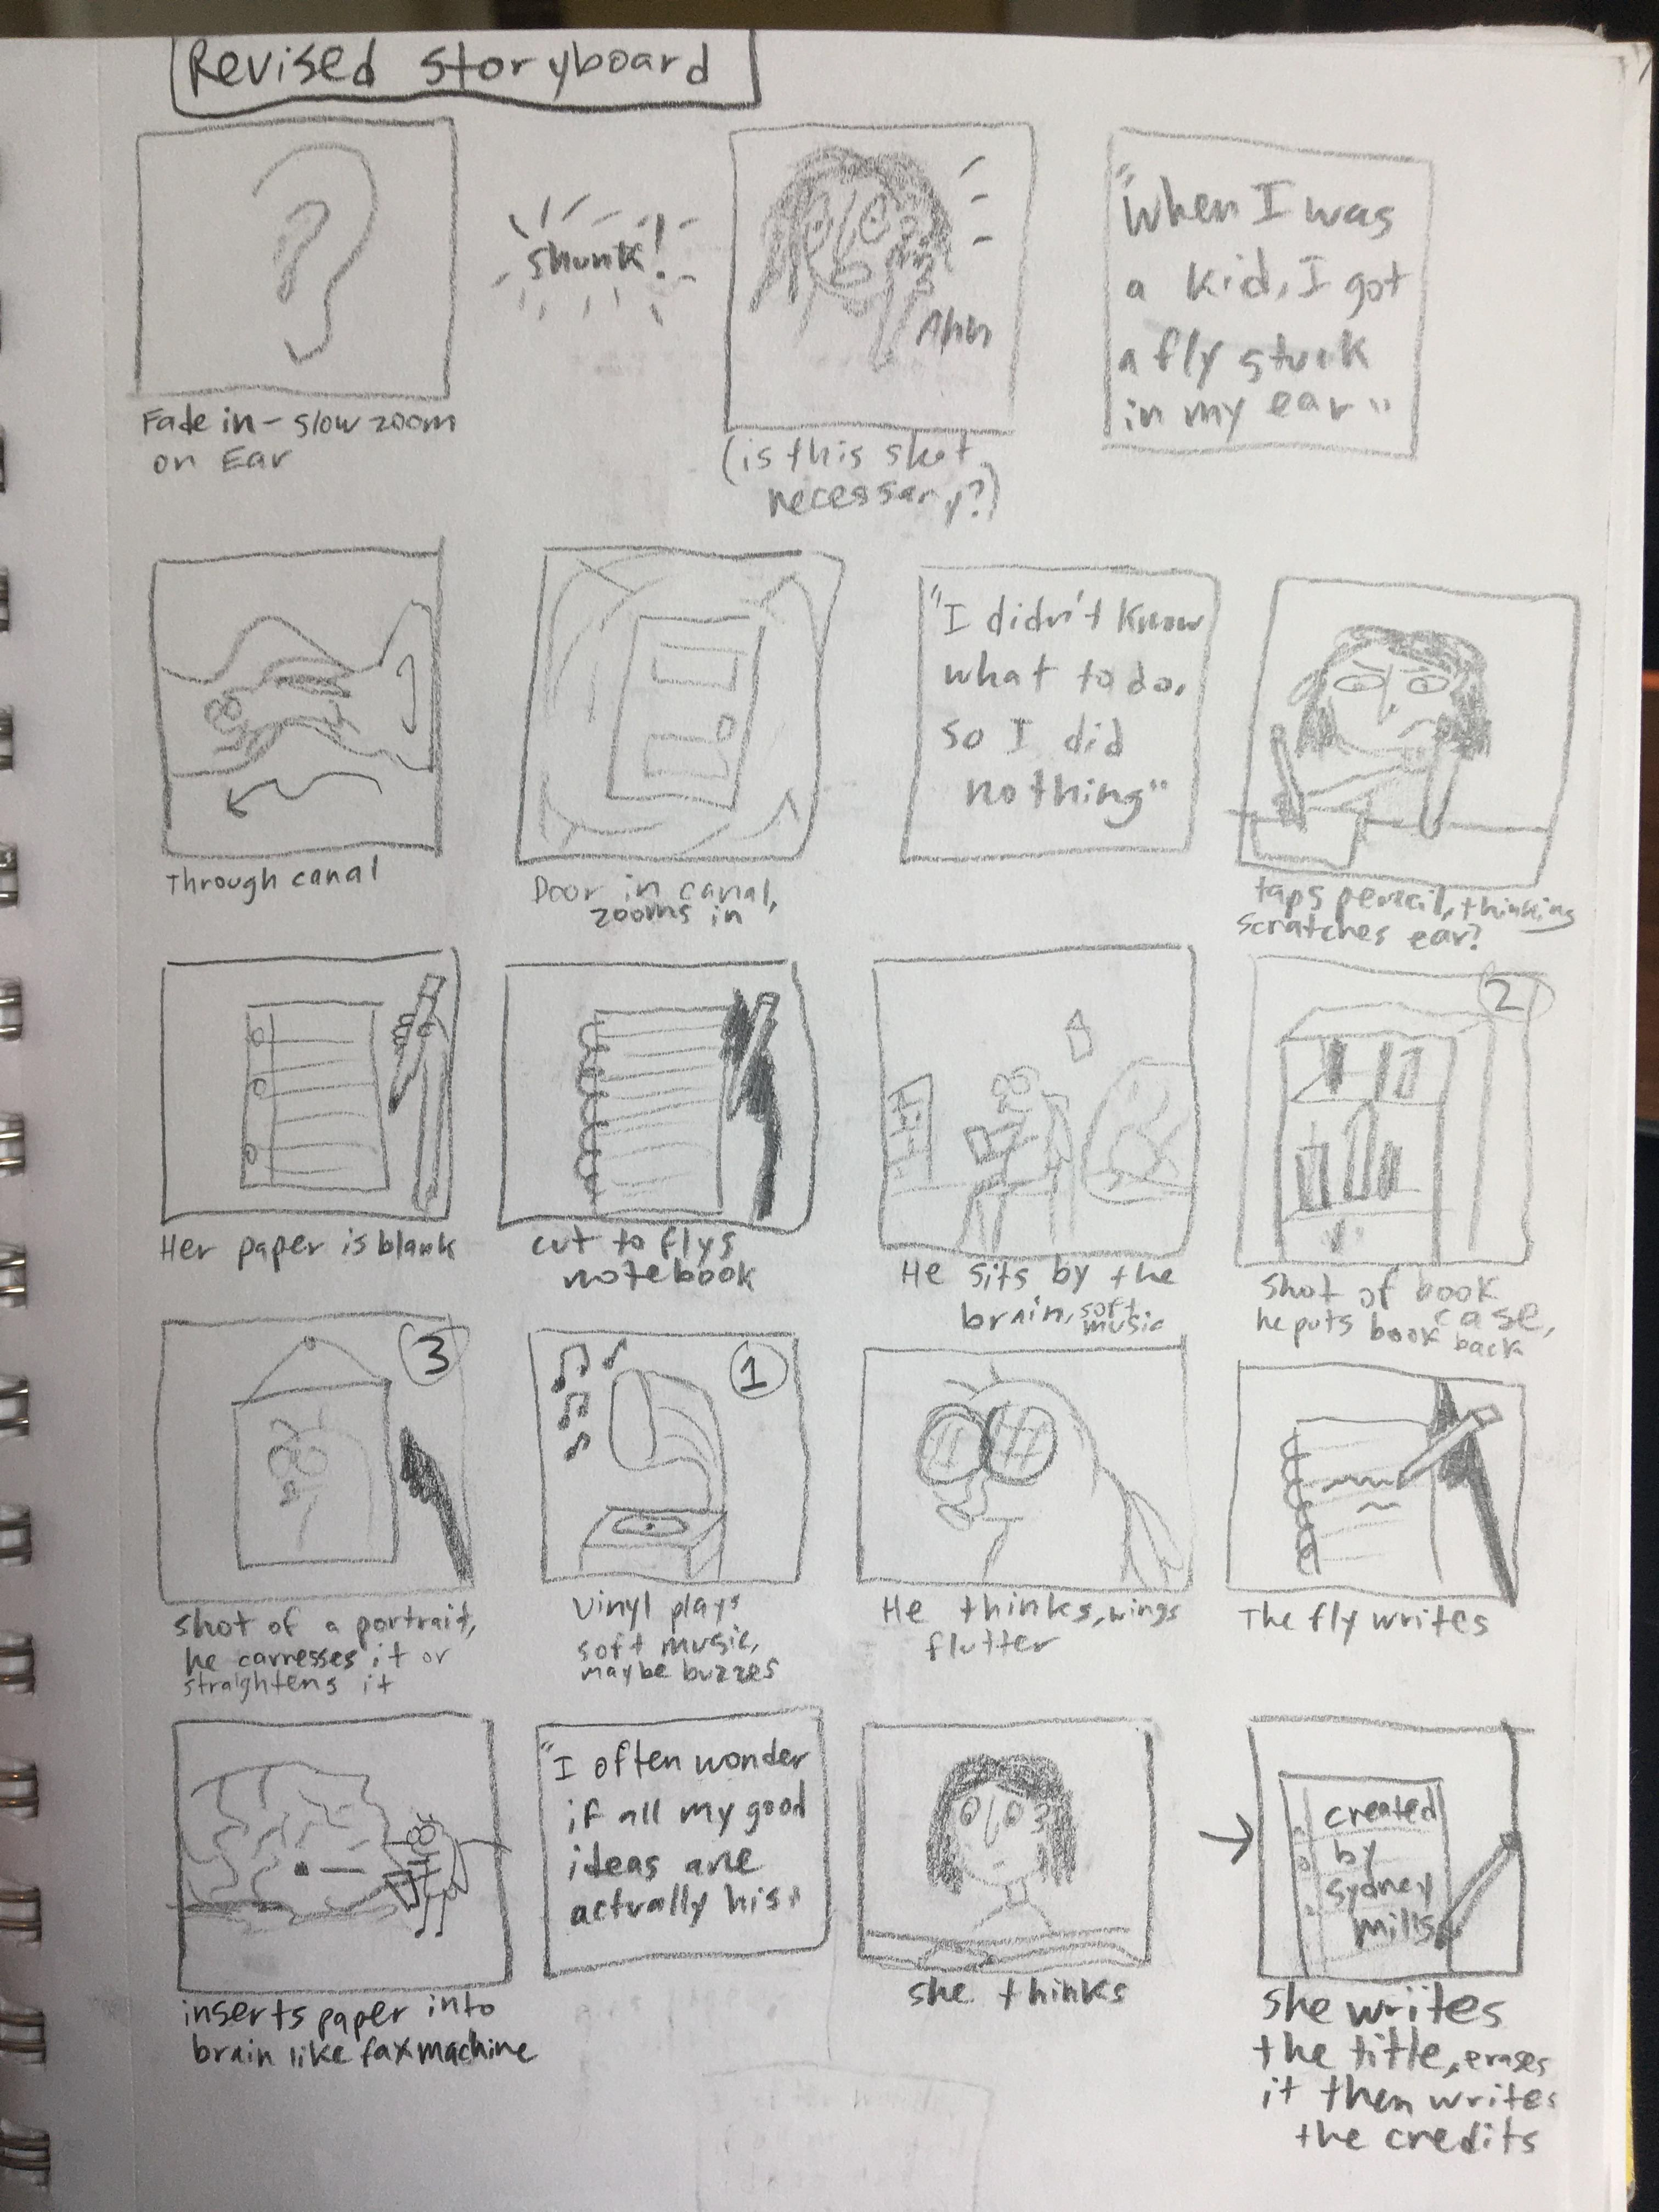 Revised storyboard
shunk!
Ahh
"When I was
a kid, I got
a fly stuck
in my ear"
Fade in - slow zoom
on Ear
(is this shot
necessary?)
"I didn't know
what to do.
so I did
nothing"
Through canal
Door in canal,
zooms in
taps pencil, thinking
scratches ear?
Her paper is blank
cut to flys
notebook
He sits by the
brain, soft
music
2
shot of book
case,
he puts book back
3
shot of a portrait,
he carresses it or
straightens it
1
Vinyl plays
soft music,
maybe buzzes
He thinks, wings
flutter
The fly writes
inserts paper into
brain like fax machine
"I often wonder
if all my good
ideas are
actually his"
she thinks
created
by
sydney
mills
she writes
the title, erases
it then writes
the credits